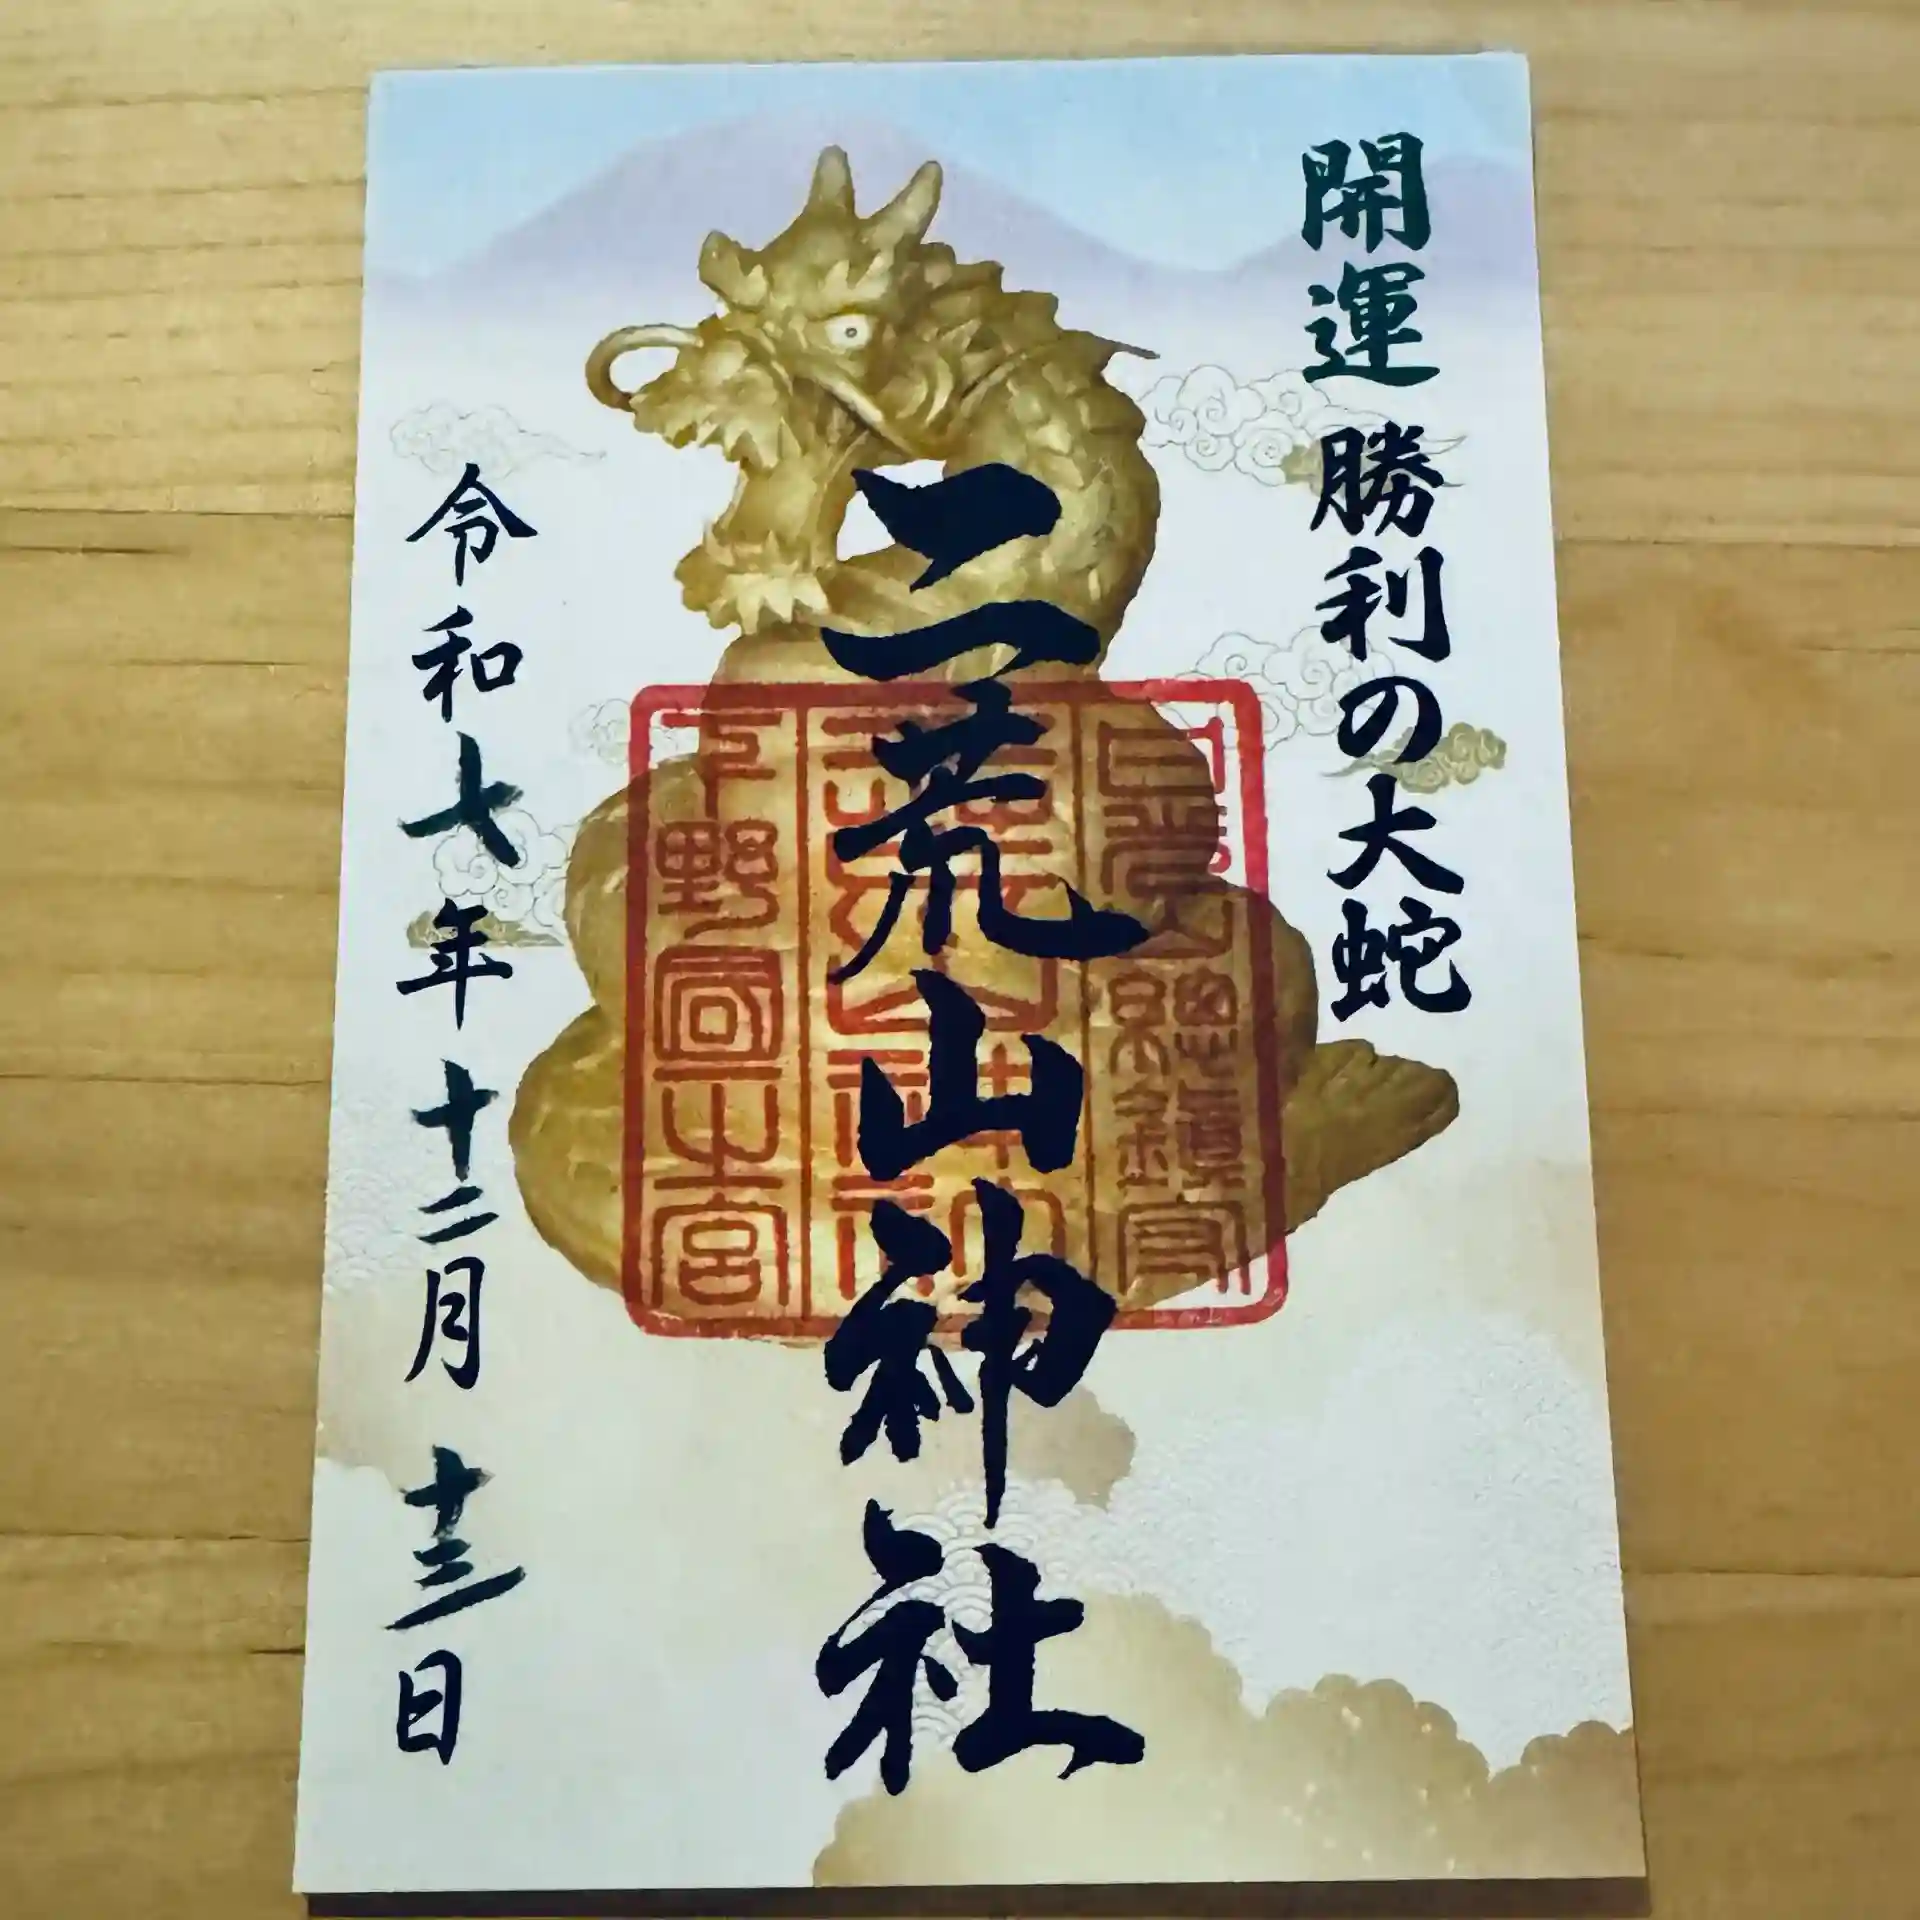 開運 勝利の大蛇
二荒山神社
日光山總鎮守
下野國一宮
令和七年十二月十三日